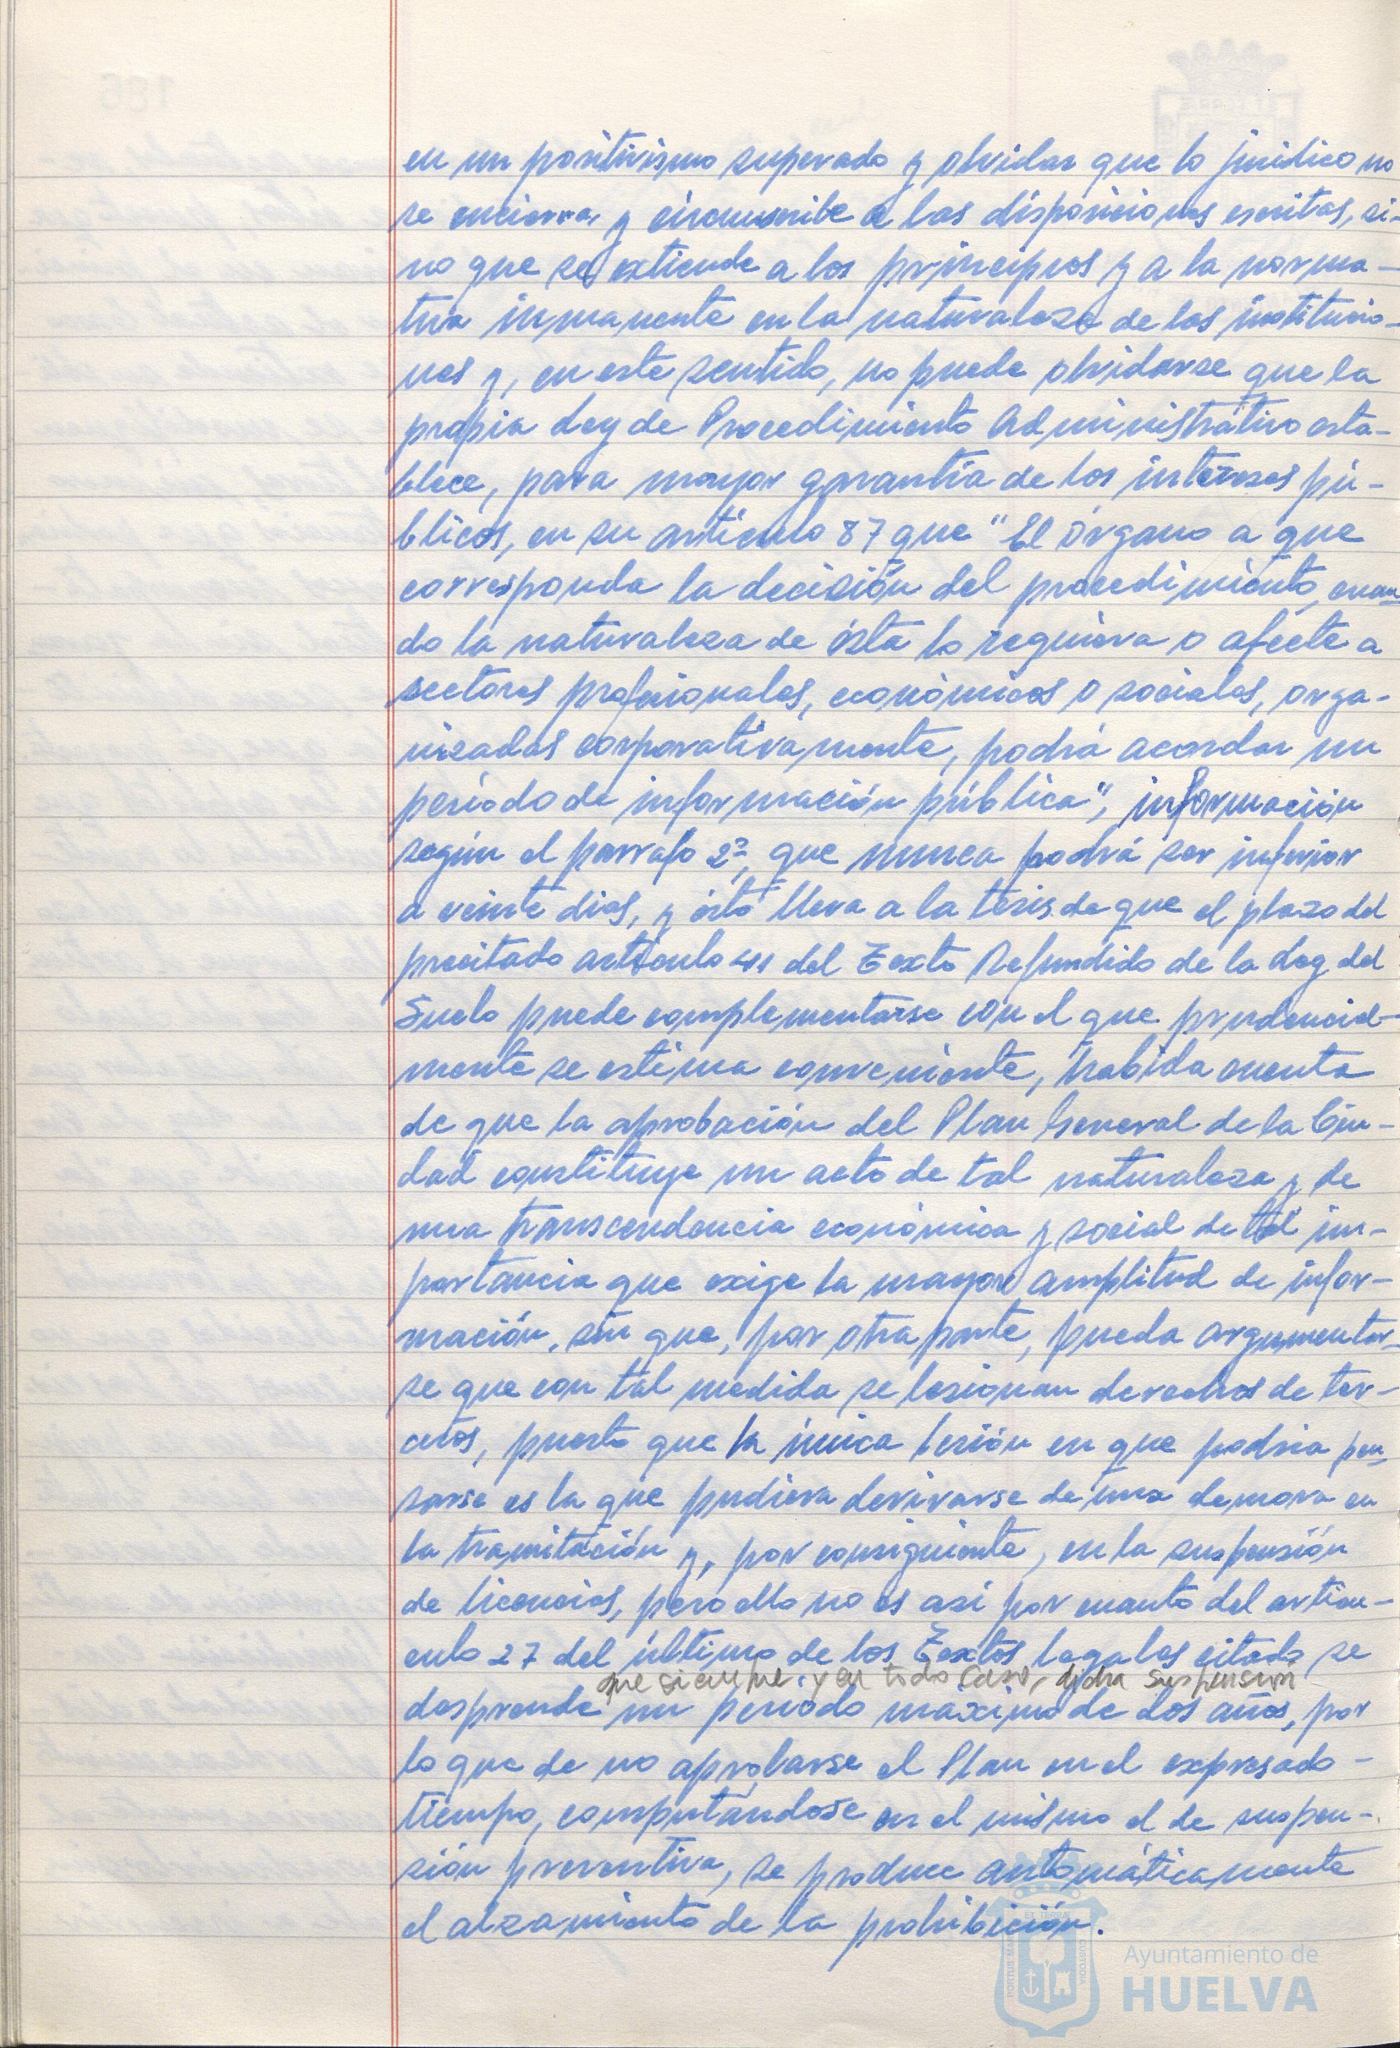 en un positivismo superado y olvidar que lo jurídico no
se encierra y circunscribe a las disposiciones escritas, si-
no que se extiende a los principios y a la norma-
tiva inmanente en la naturaleza de las institucio-
nes y, en este sentido, no puede olvidarse que la
propia Ley de Procedimiento Administrativo esta-
blece, para mayor garantía de los intereses pú-
blicos, en su artículo 87 que "El órgano a que
corresponda la decisión del procedimiento, cuan-
do la naturaleza de ésta lo requiera o afecte a
sectores profesionales, económicos o sociales, orga-
nizadas corporativamente, podrá acordar un
período de información pública", información
según el parrafo 2º, que nunca podrá ser inferior
a veinte dias, y ésto lleva a la tesis de que el plazo del
precitado artículo 41 del Texto Refundido de la Ley del
Suelo puede complementarse con el que prudencial-
mente se estima conveniente, habida cuenta
de que la aprobación del Plan General de la Ciu-
dad constituye un acto de tal naturaleza y de
una transcendencia económica y social de tal im-
portancia que exige la mayor amplitud de infor-
mación, sin que, por otra parte, pueda argumentar-
se que con tal medida se lesionan derechos de ter-
ceros, puesto que la única lesión en que podria pen-
sarse es la que pudiera derivarse de una demora en
la tramitación y, por consiguiente, en la suspensión
de licencias, pero ello no es asi por cuanto del artícu-
culo 27 del último de los Textos legales citados se
que siempre, y en todo caso, dicha suspensión
desprende un periodo maximo de dos años, por
lo que de no aprobarse el Plan en el expresado-
tiempo, computándose en el mismo el de suspen-
sión preventiva, se produce automáticamente
el alzamiento de la prohibición.
Ayuntamiento de
HUELVA